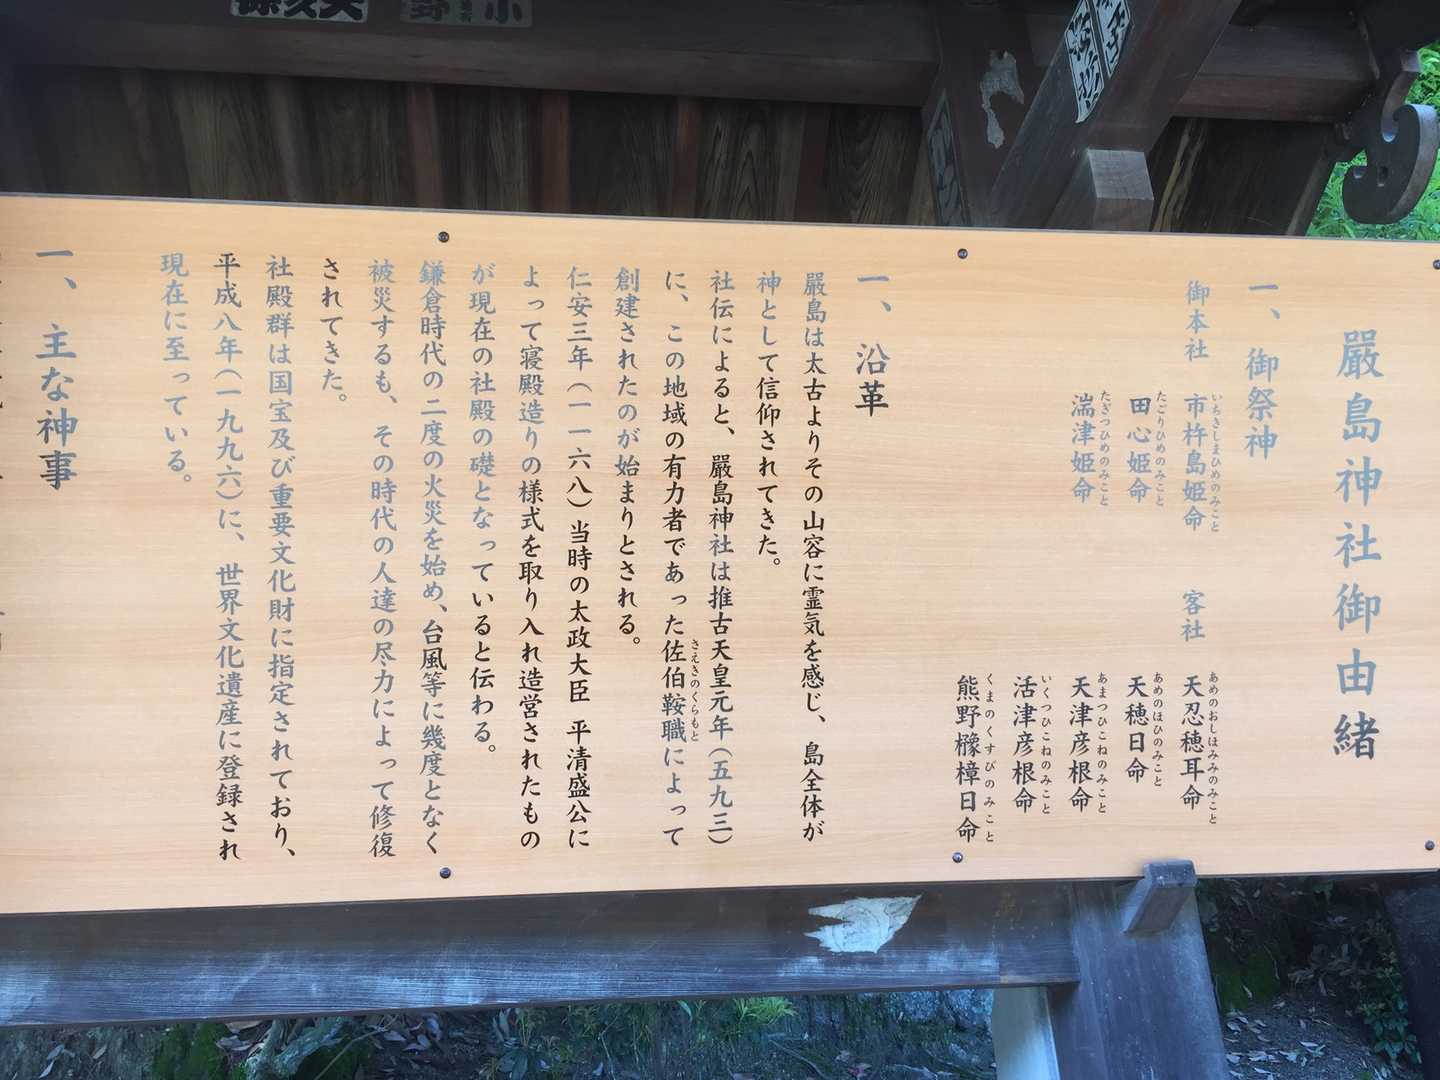 嚴島神社御由緒
一、御祭神
御本社 市杵島姫命 客社 天忍穂耳命
いちきしまひめのみこと あめのおしほみみのみこと
田心姫命 天穂日命
たごりひめのみこと あめのほひのみこと
湍津姫命 天津彦根命
たぎつひめのみこと あまつひこねのみこと
活津彦根命
いくつひこねのみこと
熊野櫲樟日命
くまのくすびのみこと
一、沿革
嚴島は太古よりその山容に霊気を感じ、島全体が
神として信仰されてきた。
社伝によると、嚴島神社は推古天皇元年（五九三）
に、この地域の有力者であった佐伯鞍職によって
さえきのくらもと
創建されたのが始まりとされる。
仁安三年（一一六八）当時の太政大臣 平清盛公に
よって寝殿造りの様式を取り入れ造営されたもの
が現在の社殿の礎となっていると伝わる。
鎌倉時代の二度の火災を始め、台風等に幾度となく
被災するも、その時代の人達の尽力によって修復
されてきた。
社殿群は国宝及び重要文化財に指定されており、
平成八年（一九九六）に、世界文化遺産に登録され
現在に至っている。
一、主な神事